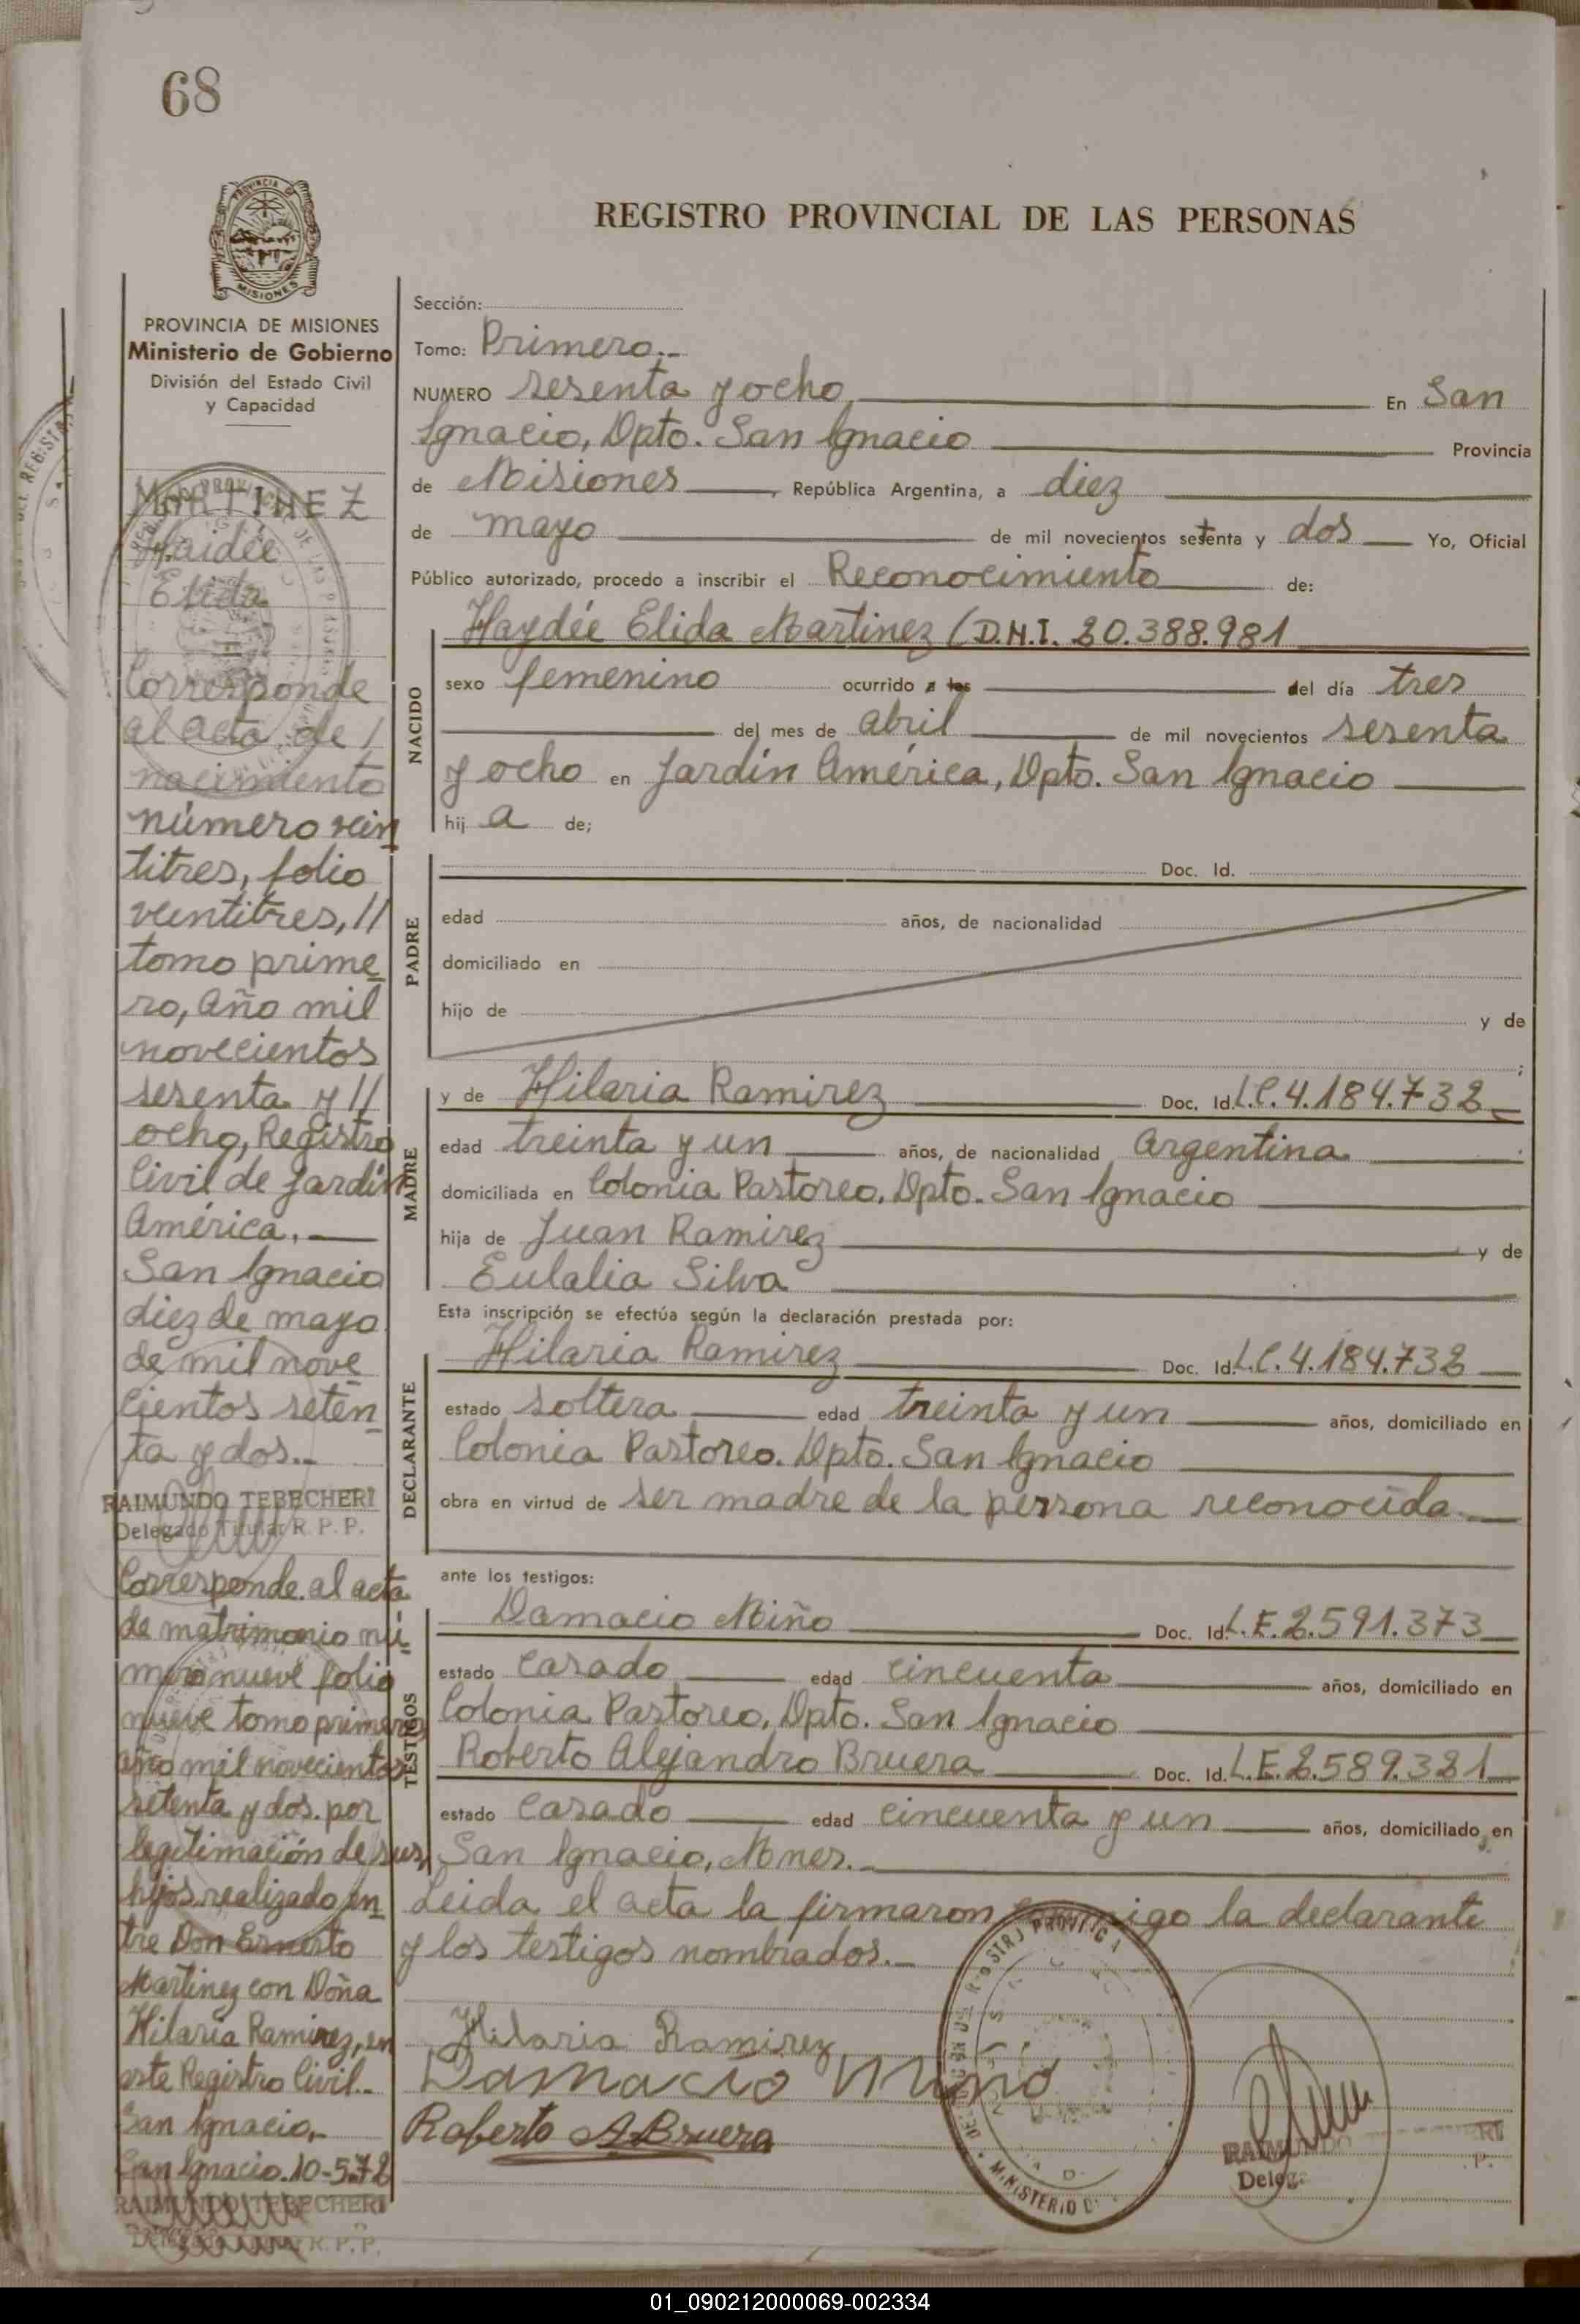 68
REGISTRO PROVINCIAL DE LAS PERSONAS
PROVINCIA DE MISIONES
Ministerio de Gobierno
División del Estado Civil
y Capacidad
MARTINEZ
Haidée
Elida
Corresponde
al acta de /
nacimiento
número vein
titres, folio
veintitres, //
tomo prime
ro, año mil
novecientos
sesenta y //
ocho, Registro
Civil de Jardín
América.
San Ignacio
diez de mayo
de mil nove
cientos seten
ta y dos.-
RAIMUNDO TEBECHERI
Delegado Titular R. P. P.
Corresponde al acta
de matrimonio nú-
mero nueve folio
nueve tomo primero
año mil novecientos
setenta y dos. por
legitimación de sus
hijos realizado en
tre Don Ernesto
Martinez con Doña
Hilaria Ramirez, en
este Registro Civil.-
San Ignacio,-
San Ignacio. 10-5-72
RAIMUNDO TEBECHERI
Delegado Titular R. P. P.
Sección:
Tomo: Primero.-
NUMERO sesenta y ocho En San
Ignacio, Dpto. San Ignacio Provincia
de Misiones, República Argentina, a diez
de mayo de mil novecientos setenta y dos Yo, Oficial
Público autorizado, procedo a inscribir el Reconocimiento de:
NACIDO
Haydée Elida Martinez (D.N.I. 20.388.981
sexo femenino ocurrido a las del día tres
del mes de abril de mil novecientos sesenta
y ocho en Jardín América, Dpto. San Ignacio
hij a de;
PADRE
Doc. Id.
edad años, de nacionalidad
domiciliado en
hijo de y de
;
MADRE
y de Hilaria Ramirez Doc. Id. L.C. 4.184.732
edad treinta y un años, de nacionalidad Argentina
domiciliada en Colonia Pastoreo, Dpto. San Ignacio
hija de Juan Ramirez y de
Eulalia Silva
Esta inscripción se efectúa según la declaración prestada por:
DECLARANTE
Hilaria Ramirez Doc. Id. L.C. 4.184.732
estado soltera edad treinta y un años, domiciliado en
Colonia Pastoreo. Dpto. San Ignacio
obra en virtud de ser madre de la persona reconocida.
ante los testigos:
TESTIGOS
Damacio Miño Doc. Id. L.E. 2.591.373
estado casado edad cincuenta años, domiciliado en
Colonia Pastoreo, Dpto. San Ignacio
Roberto Alejandro Bruera Doc. Id. L.E. 2.589.321
estado casado edad cincuenta y un años, domiciliado en
San Ignacio, Mnes.
Leida el acta la firmaron conmigo la declarante
y los testigos nombrados.
Hilaria Ramirez
Damacio Miño
Roberto A. Bruera
01_090212000069-002334